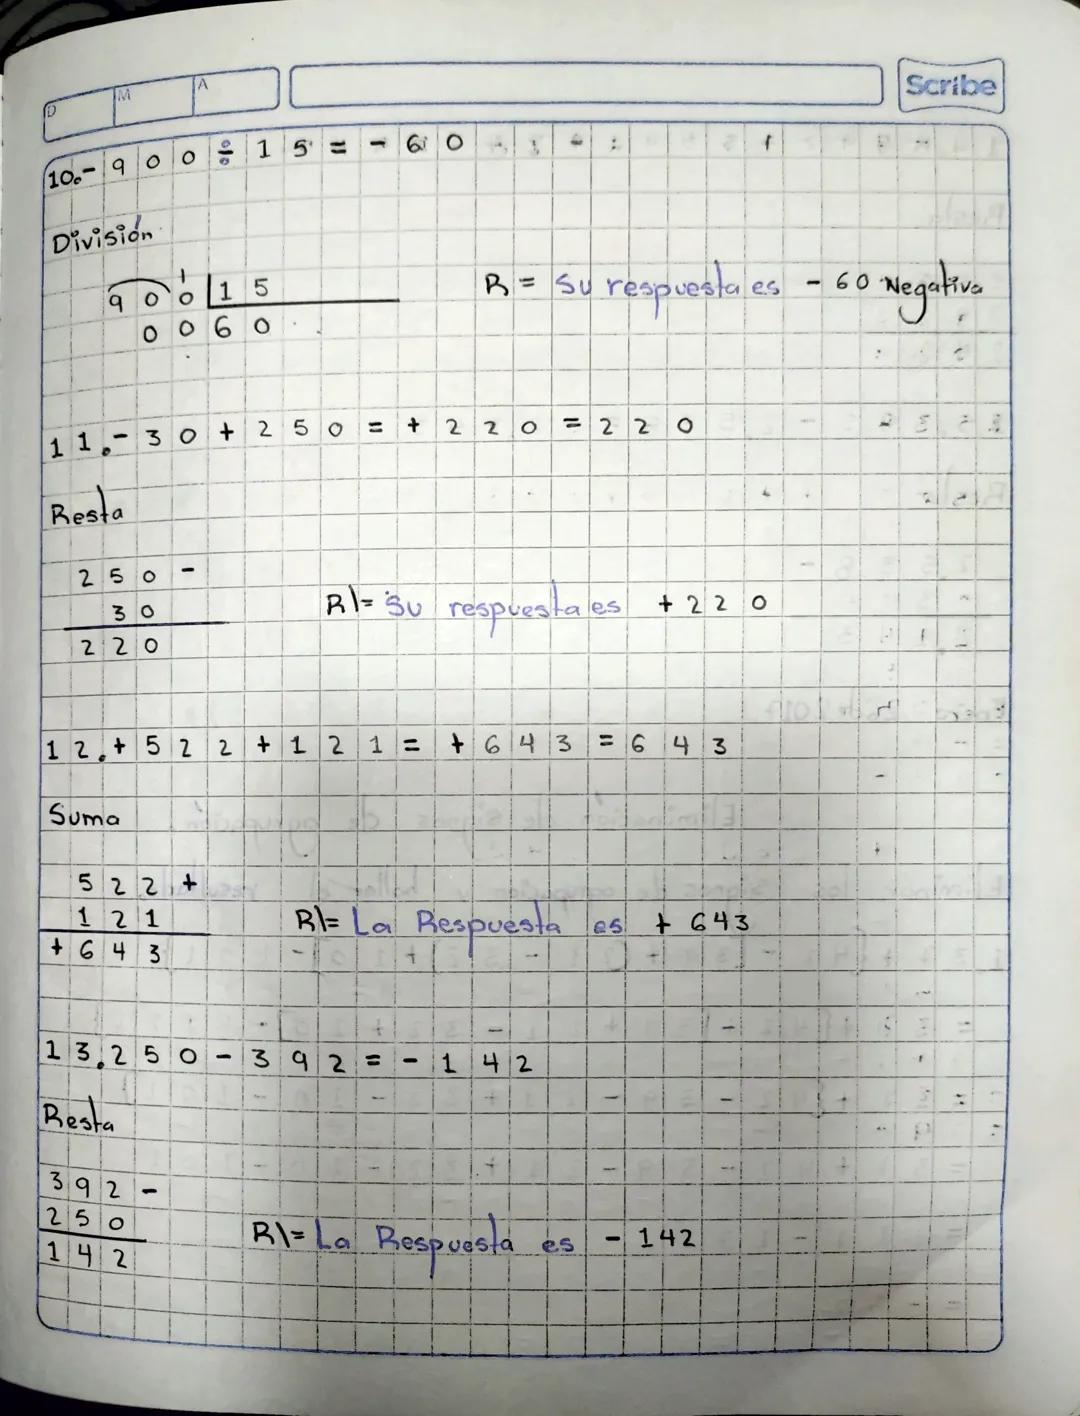 D M A Scribe
10.- 900 ÷ 15 = - 60
División
900 15 R = Su respuesta es - 60 Negativa
00 60
11.- 30 + 250 = + 220 = 220
Resta
250 -
30 R\= Su respuesta es + 220
220
12. + 522 + 121 = + 643 = 643
Suma
522 +
121 R\= La Respuesta es + 643
+ 643
13. 250 - 392 = - 142
Resta
392 -
250 R\= La Respuesta es - 142
142